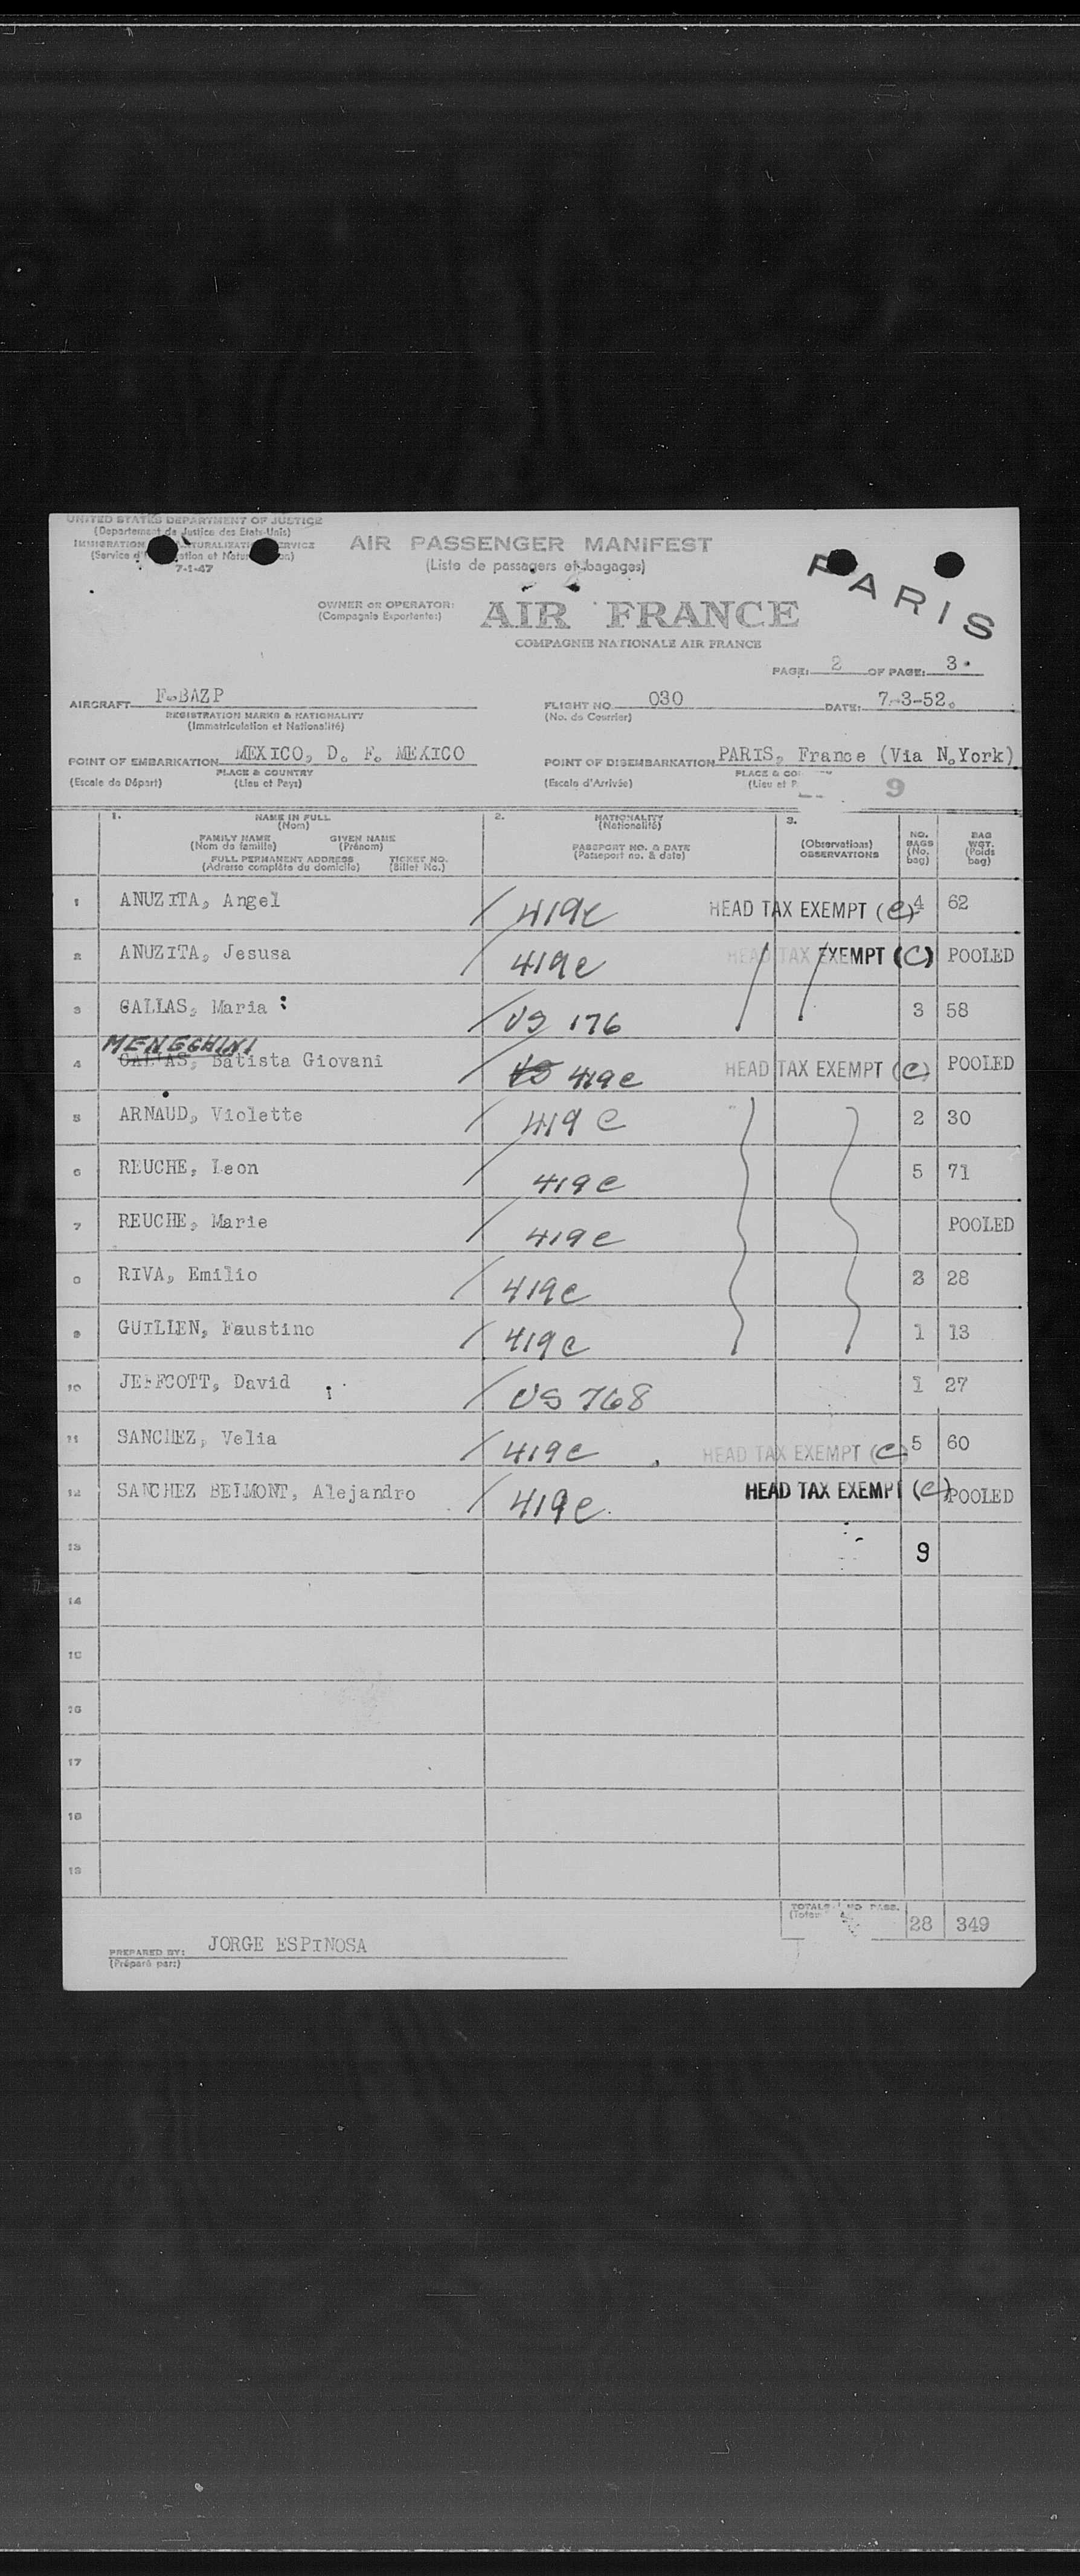 UNITED STATES DEPARTMENT OF JUSTICE
(Departement de Justice des Etats-Unis)
IMMIGRATION NATURALIZATION SERVICE
(Service d' ation et Natur on)
7-1-47
AIR PASSENGER MANIFEST
(Liste de passagers et bagages)
PARIS
OWNER OR OPERATOR:
(Compagnie Exportante:)
AIR FRANCE
COMPAGNIE NATIONALE AIR FRANCE
PAGE: 2 OF PAGE: 3.
AIRCRAFT F-BAZP FLIGHT NO. 030 DATE: 7-3-52.
REGISTRATION MARKS & NATIONALITY (No. de Courrier)
(Immatriculation et Nationalité)
POINT OF EMBARKATION MEXICO, D. F. MEXICO POINT OF DISEMBARKATION PARIS, France (Via N.York)
PLACE & COUNTRY PLACE & CO
(Escale de Départ) (Lieu et Pays) (Escale d'Arrivée) (Lieu et P
9
1. NAME IN FULL 2. NATIONALITY 3.
(Nom) (Nationalité)
FAMILY NAME GIVEN NAME NO. BAGS BAG WGT.
(Nom de famille) (Prénom) PASSPORT NO. & DATE (Observations) (No. bag) (Poids bag)
FULL PERMANENT ADDRESS TICKET NO. (Passeport no. & date) OBSERVATIONS
(Adresse complète du domicile) (Billet No.)
1 ANUZITA, Angel / 419c HEAD TAX EXEMPT (C) 4 62
2 ANUZITA, Jesusa / 419c HEAD TAX EXEMPT (C) POOLED
3 GALLAS, Maria : / US 176 3 58
MENEGHINI
4 GALLAS, Batista Giovani / US 419c HEAD TAX EXEMPT (C) POOLED
5 ARNAUD, Violette / 419 C 2 30
6 REUCHE, Leon / 419c 5 71
7 REUCHE, Marie / 419c POOLED
8 RIVA, Emilio / 419c 2 28
9 GUILLEN, Faustino / 419c 1 13
10 JEFFCOTT, David / US 768 1 27
11 SANCHEZ, Velia / 419c HEAD TAX EXEMPT (C) 5 60
12 SANCHEZ BELMONT, Alejandro / 419c. HEAD TAX EXEMPT (C) POOLED
13 9
14
15
16
17
18
19
TOTALS NO PASS. 28 349
PREPARED BY: JORGE ESPINOSA
(Préparé par:)